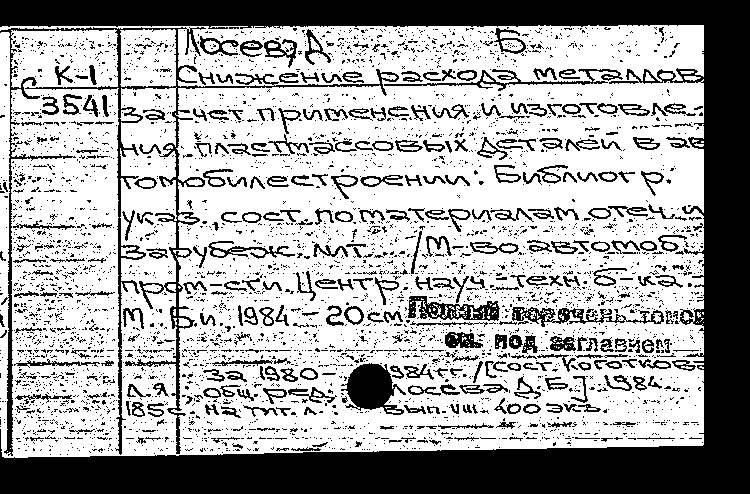 Лосева, Д. Б
К-1
С
3541
Снижение расхода металлов
за счет применения и изготовле-
ния пластмассовых деталей в ав
томобилестроении: Библиогр.
указ., сост. по материалам отеч. и
зарубеж. лит. / М-во автомоб.
пром-сти. Центр. науч.-техн. б-ка. -
М.: Б.и., 1984. - 20 см.
Полный перечень томов
см. под заглавием
за 1980- 1984 гг. / [Сост. Коготкова
Л.Я., общ. ред. Лосева Д.Б.]. 1984.
185 с. На тит. л.: Вып. VIII. 400 экз.